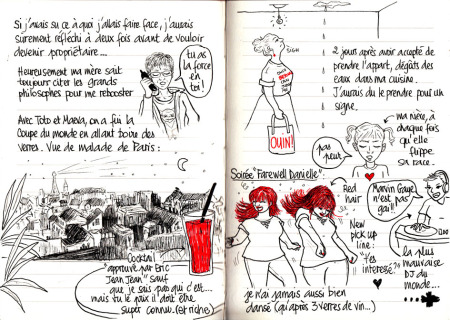 Si j'avais su ce à quoi j'allais faire face, j'aurais
surement réfléchi à deux fois avant de vouloir
devenir propriétaire...
Heureusement ma mère sait
toujours citer les grands
philosophes pour me rebooster
tu as
la force
en
toi!
Avec Toto et Maeva, on a fui la
Coupe du monde en allant boire des
verres. Vue de malade de Paris:
Cocktail
"approuvé par Eric
Jean Jean" sauf
que je sais pas qui c'est...
mais vu le prix il doit être
super connu. (et riche)
SIGH
OUIN!
2 jours après avoir accepté de
prendre l'appart, dégâts des
eaux dans ma cuisine.
J'aurais du le prendre pour un
signe.
ma nièce, à
chaque fois
qu'elle
flippe
sa race.
pas
peur.
Soirée "Farewell Danielle"
Red
hair
New
pick up
line:
"t'es
interessé?"
Marvin Gaye
n'est pas
gai!!
la plus
mauvaise
DJ du
monde...
je n'ai jamais aussi bien
dansé (qu'après 3 verres de vin...)